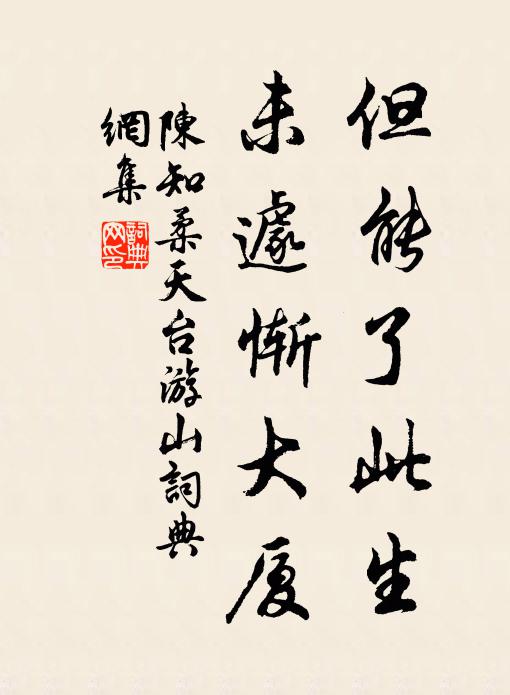 但能了此生
未遽惭大厦
陳知柔天台游山詞典
網集
詞典
网印